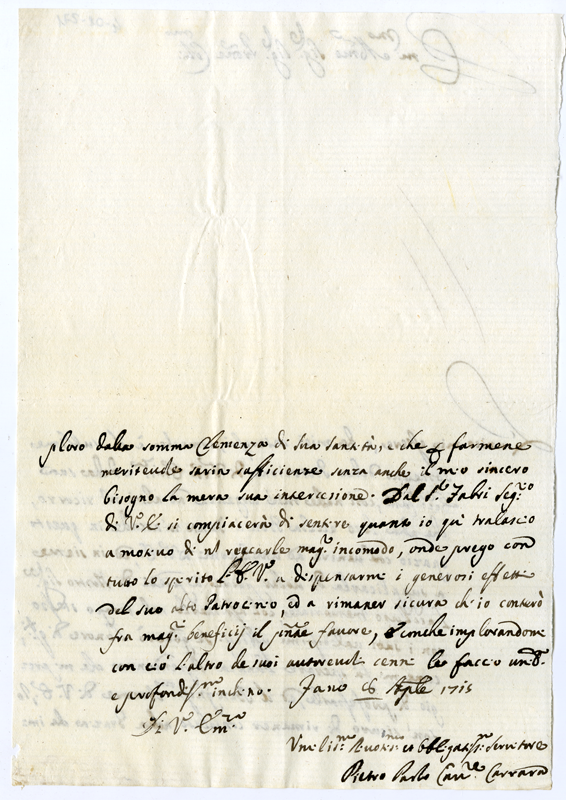 ploro dalla somma Clemenza di sua santità, e che p farmene
meriteuole saria sufficiente senza anche il mio sincero
bisogno la mera sua intercessione. Dal S.r Fabri Seg.o
di V. E. si compiacerà di sentire quanto io quì tralascio
a motiuo di nō reccarle mag.r incomodo, onde prego con
tutto lo spirito l'E. V.a a dispensarmi i generosi effetti
del suo alto Patrocinio, ed a rimaner sicura ch'io conterò
fra mag.ri beneficij il pñte fauore, implorandone
con ciò l'altro de suoi autoreuoli cenni le faccio um.e
e profondiss.mo inchino. Fano Aprile 1715
Di V.a Em.za
Vmiliss.mo Diuotis.mo et Obligatiss.mo Seruitore
Pietro Paolo Carrara